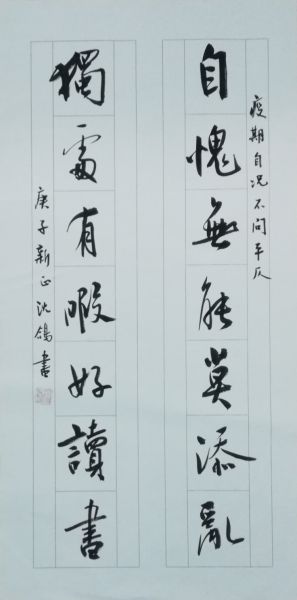 疫期自况不问平仄
自愧無能莫添亂
獨處有暇好讀書
庚子新正沈鸽書